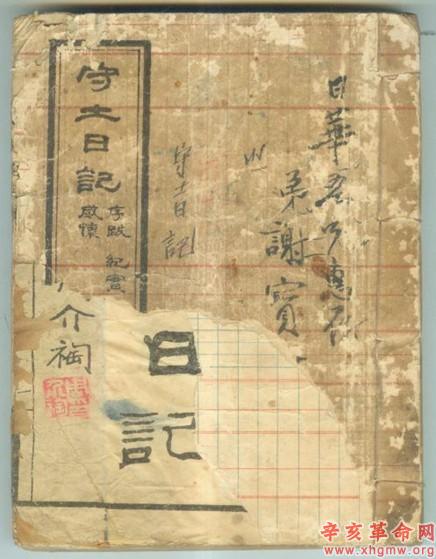 日華吾兄惠存
弟謝寶
守土日記
守土日記
序跋 紀實
感懷
介裪
日記
辛亥革命网
www.xhgmw.org